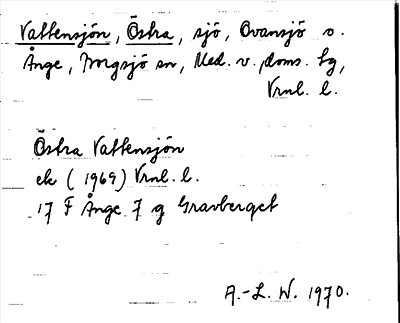 Vattensjön, Östra, sjö, Ovansjö o.
Ånge, Borgsjö sn, Med. v. doms. tg,
Vrnl. l.
Östra Vattensjön
ek (1969) Vrnl. l.
17 F Ånge 7 g Gravberget
A.-L. W. 1970.